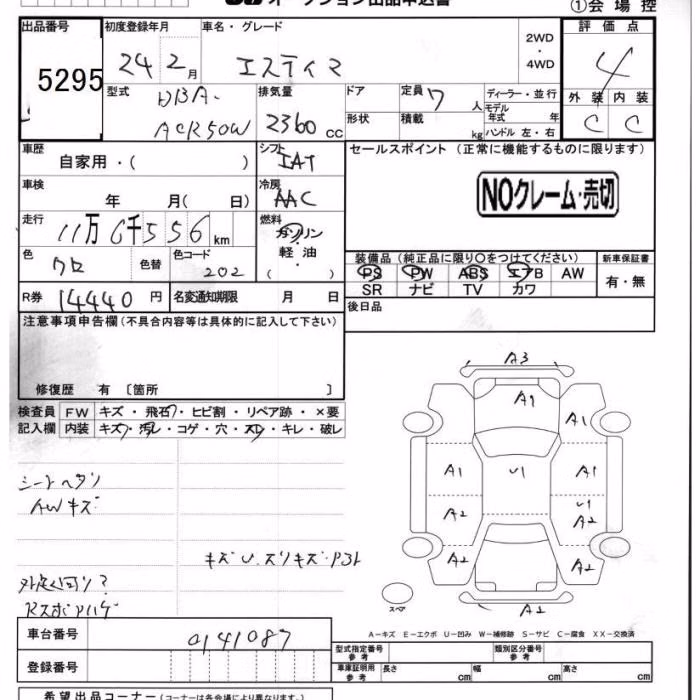 オークション出品申込書
①会場控
出品番号
5295
初度登録年月
24年2月
車名・グレード
エスティマ
2WD
・
4WD
評価点
4
型式
DBA-
ACR50W
排気量
2360cc
ドア
形状
定員
7人
積載
kg
ディーラー・並行
モデル
年式 年
ハンドル 左・右
外装 内装
C C
車歴
自家用・( )
シフト
IAT
セールスポイント(正常に機能するものに限ります)
NOクレーム・売切
車検
年 月( 日)
冷房
AAC
走行
11万6千556km
燃料
ガソリン
・
軽油
( )
色
クロ
色替
色コード
202
装備品(純正品に限り○をつけてください)
PS PW ABS エアB AW
SR ナビ TV カワ
新車保証書
有・無
R券
14440円
名変通知期限 月 日
後日品
注意事項申告欄(不具合内容等は具体的に記入して下さい)
修復歴 有 〔箇所 〕
検査員
記入欄
FW キズ・飛石・ヒビ割・リペア跡・×要
内装 キズ・汚レ・コゲ・穴・スレ・キレ・破レ
シートヘタリ
AWキズ
キズ U.スリキズ・
A3
A1
A1
A1
U1
A1
A2
U1
A2
A2
A2
A2
スペア
A−キズ E−エクボ U−凹み W−補修跡 S−サビ C−腐食 XX−交換済
車台番号
0141087
登録番号
型式指定番号
参考
類別区分番号
参考
車庫証明用
参考
長さ cm
幅 cm
高さ cm
希望出品コーナー(コーナーは各会場により異なります。)